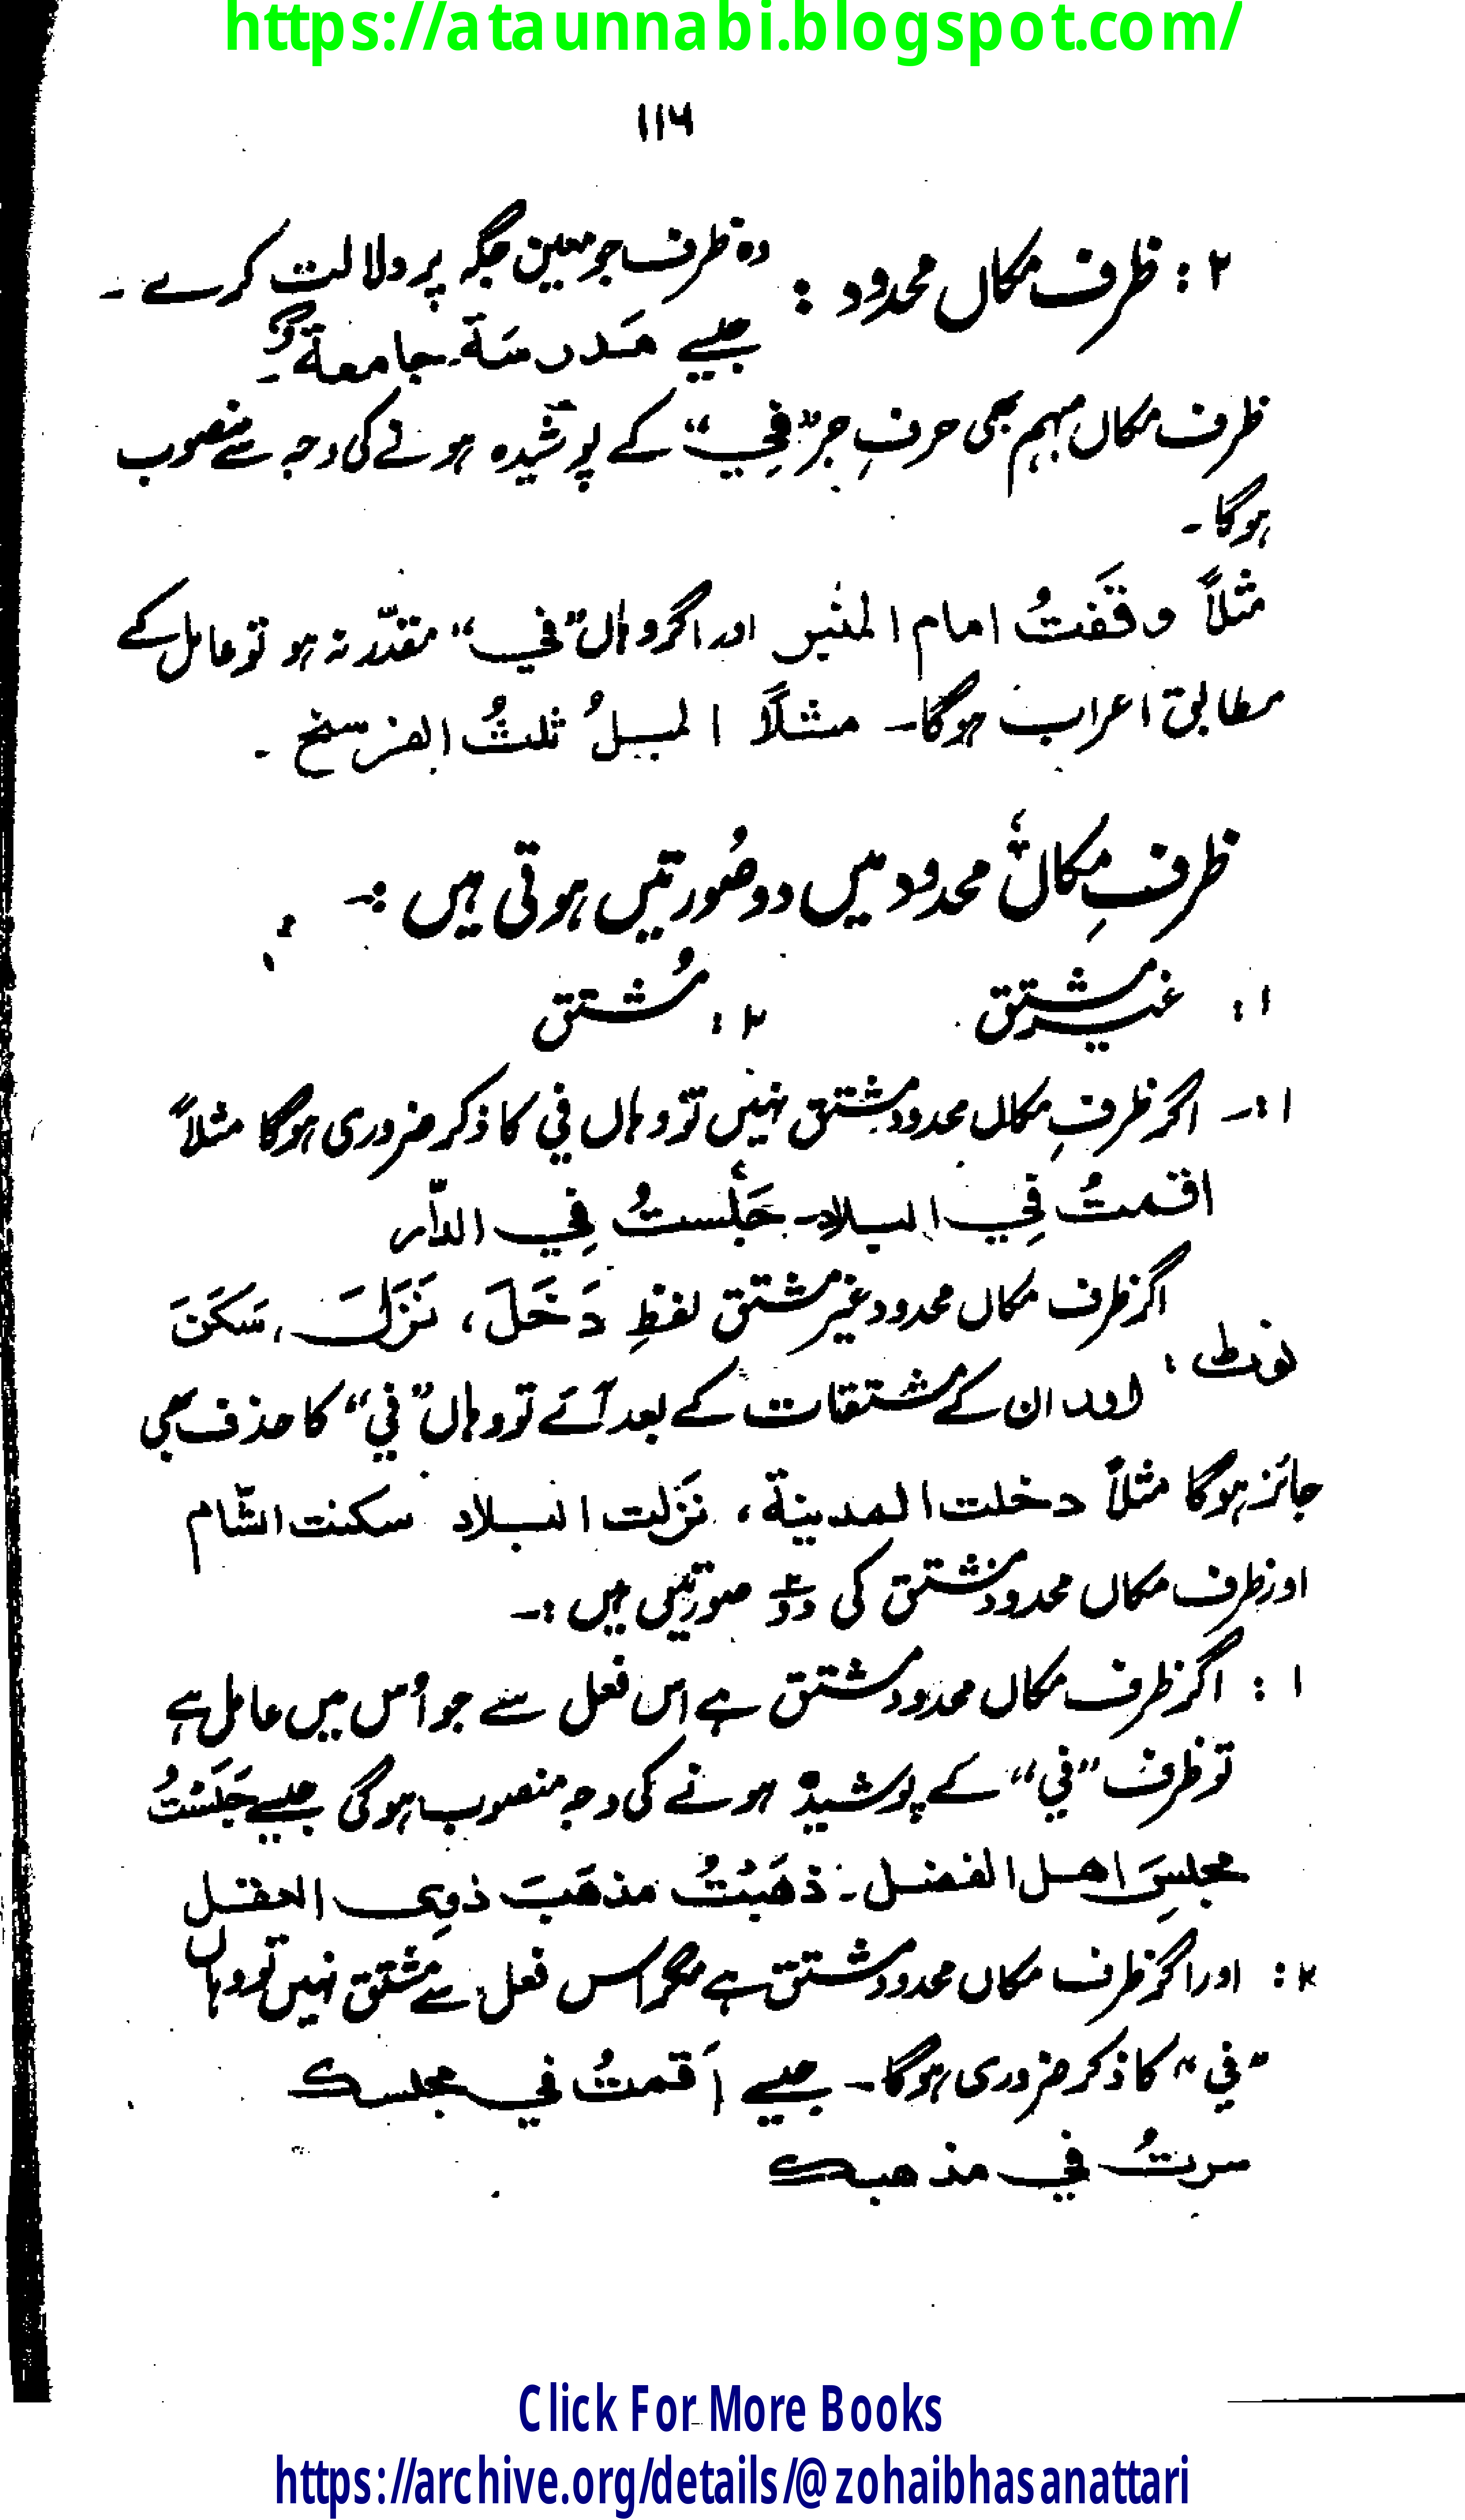 https://ataunnabi.blogspot.com/
۱۱۶
۲: ظرف مکاں محدود: وہ ظرف جو معین جگہ پر دلالت کرے۔
جیسے مَدرسَة۔ جامعة وغیرہ
ظرف مکاں مبہم بھی حرفِ جر "فِي" کے پوشیدہ ہونے کی وجہ سے منصوب
ہوگا۔
مثلاً وقَفتُ امام المنبر اور اگر وہاں "في" مقدّر نہ ہو تو عامل کے
مطابق اعراب ہوگا۔ مثلاً المیلُ ثلثُ الفرسخ۔
ظرفِ مکاںِ محدود میں دو صُورتیں ہوتی ہیں :۔
۱: غیر مشتق ۲: مُشتق
۱:۔ اگر ظرفِ مکاں محدود مشتق نہیں تو وہاں في کا ذکر ضروری ہوگا مثلاً
اقمتُ فِي البلاد۔ جَلَستُ فِي الدَّار
اگر ظرف مکاں محدود غیر مشتق لفظِ دَخَلَ، نَزَلَ، سَكَنَ
نوٹ: اور ان کے مشتقات کے بعد آئے تو وہاں "في" کا حذف بھی
جائز ہوگا مثلاً دخلت المدينة، نزَلت البلاد سكنت الشّام
اور ظرف مکاں محدود مشتق کی دو صورتیں ہیں :۔
۱: اگر ظرف مکاں محدود مشتق ہے اس فعل سے جو اُس میں عامل ہے
تو ظرف "في" کے پوشیدہ ہونے کی وجہ منصوب ہوگی جیسے جَلَسْتُ
مجلِسَ اهل الفضل۔ ذهَبْتُ مذهَبَ ذوِی العقل
۲: اور اگر ظرف مکاں محدود مشتق ہے مگر اس فعل سے مشتق نہیں تو وہاں
"في" کا ذکر ضروری ہوگا۔ جیسے اَقمتُ في مجلسك
سرتُ في مذهبك
Click For More Books
https://archive.org/details/@zohaibhasanattari